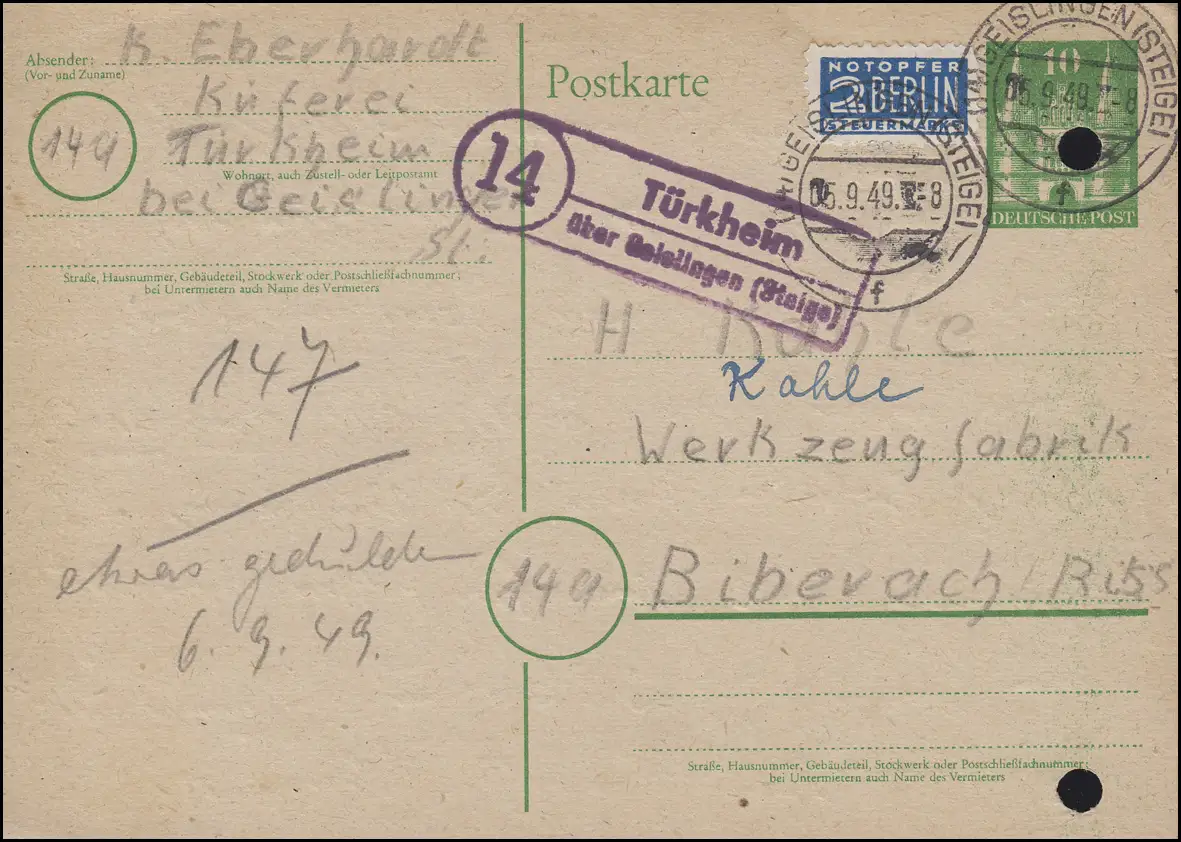 Absender:
K. Eberhardt
(Vor- und Zuname)
Küferei
14a
Türkheim
Wohnort, auch Zustell- oder Leitpostamt
bei Geislingen
St.
Straße, Hausnummer, Gebäudeteil, Stockwerk oder Postschließfachnummer;
bei Untermietern auch Name des Vermieters
147
etwas gedulden
6. 9. 49.
Postkarte
NOTOPFER
2 BERLIN
STEUERMARKE
GEISLINGEN (STEIGE)
05.9.49.-8
f
10
DEUTSCHE POST
GEISLINGEN (STEIGE)
05.9.49.-8
f
14
Türkheim
über Geislingen (Steige)
H. Kahle
Kahle
Werkzeugfabrik
14a
Biberach / Riss
Straße, Hausnummer, Gebäudeteil, Stockwerk oder Postschließfachnummer;
bei Untermietern auch Name des Vermieters